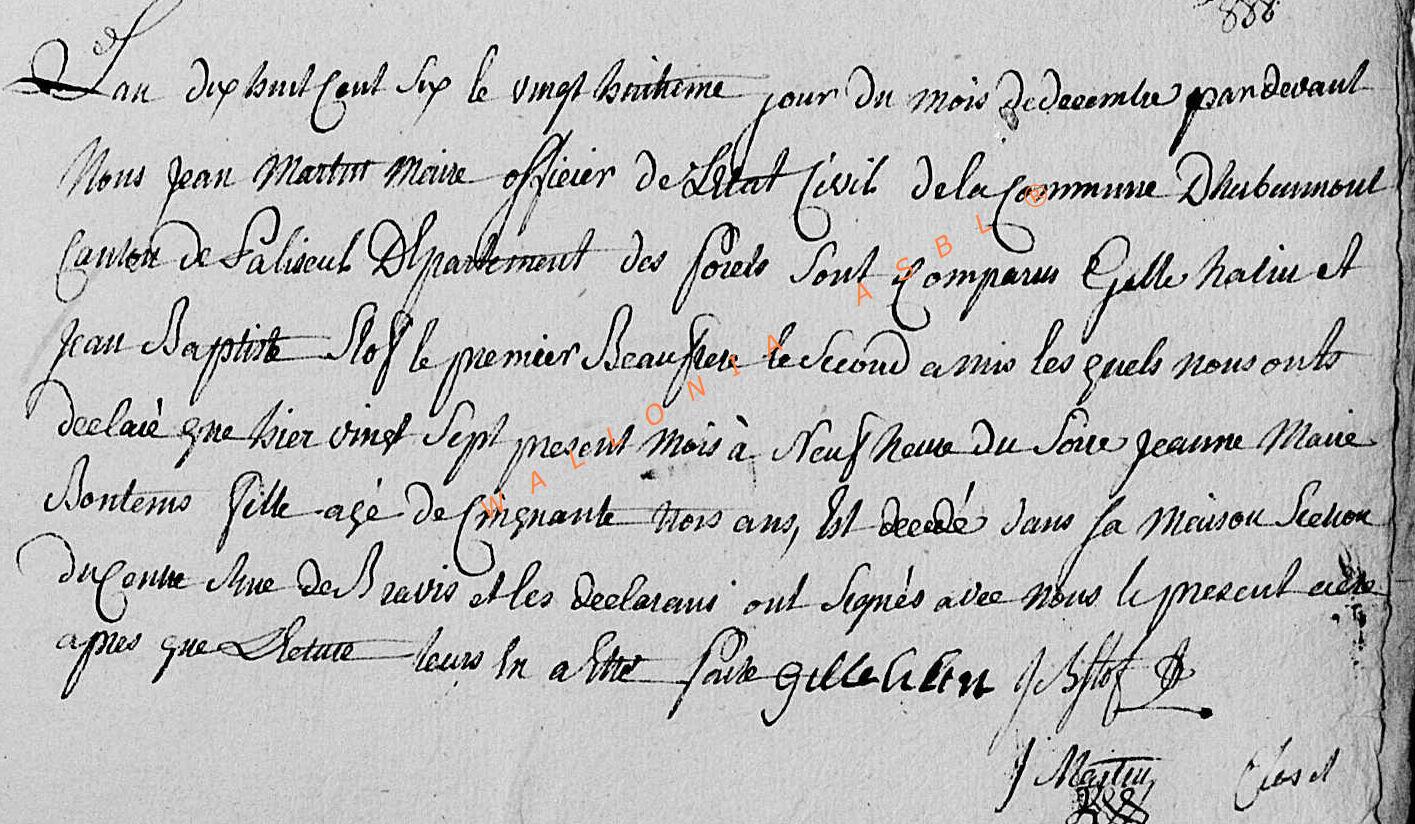 888
Lan dix huit Cent Six le vingt huitieme jour du mois de decembre pardevant
Nous jean Martin Maire officier de Letat Civil de la Commune Dherbeumont
Canton de Paliseul Département des forets Sont Comparus Gille halin et
jean Baptiste Stof le premier Beaufrere le Second amis les quels nous onts
declaré que hier vingt Sept present mois à Neuf heure du Soire jeanne Marie
Bontems fille agé de Cinquante trois ans, Est decedé dans sa Maison Section
du Centre Rue de Bravis et les declarans ont Signés avec nous le present acte
apres que Lecture leurs En a Etté faite gille halin J B Stof
J Martin
WALLONIA ASBL ®